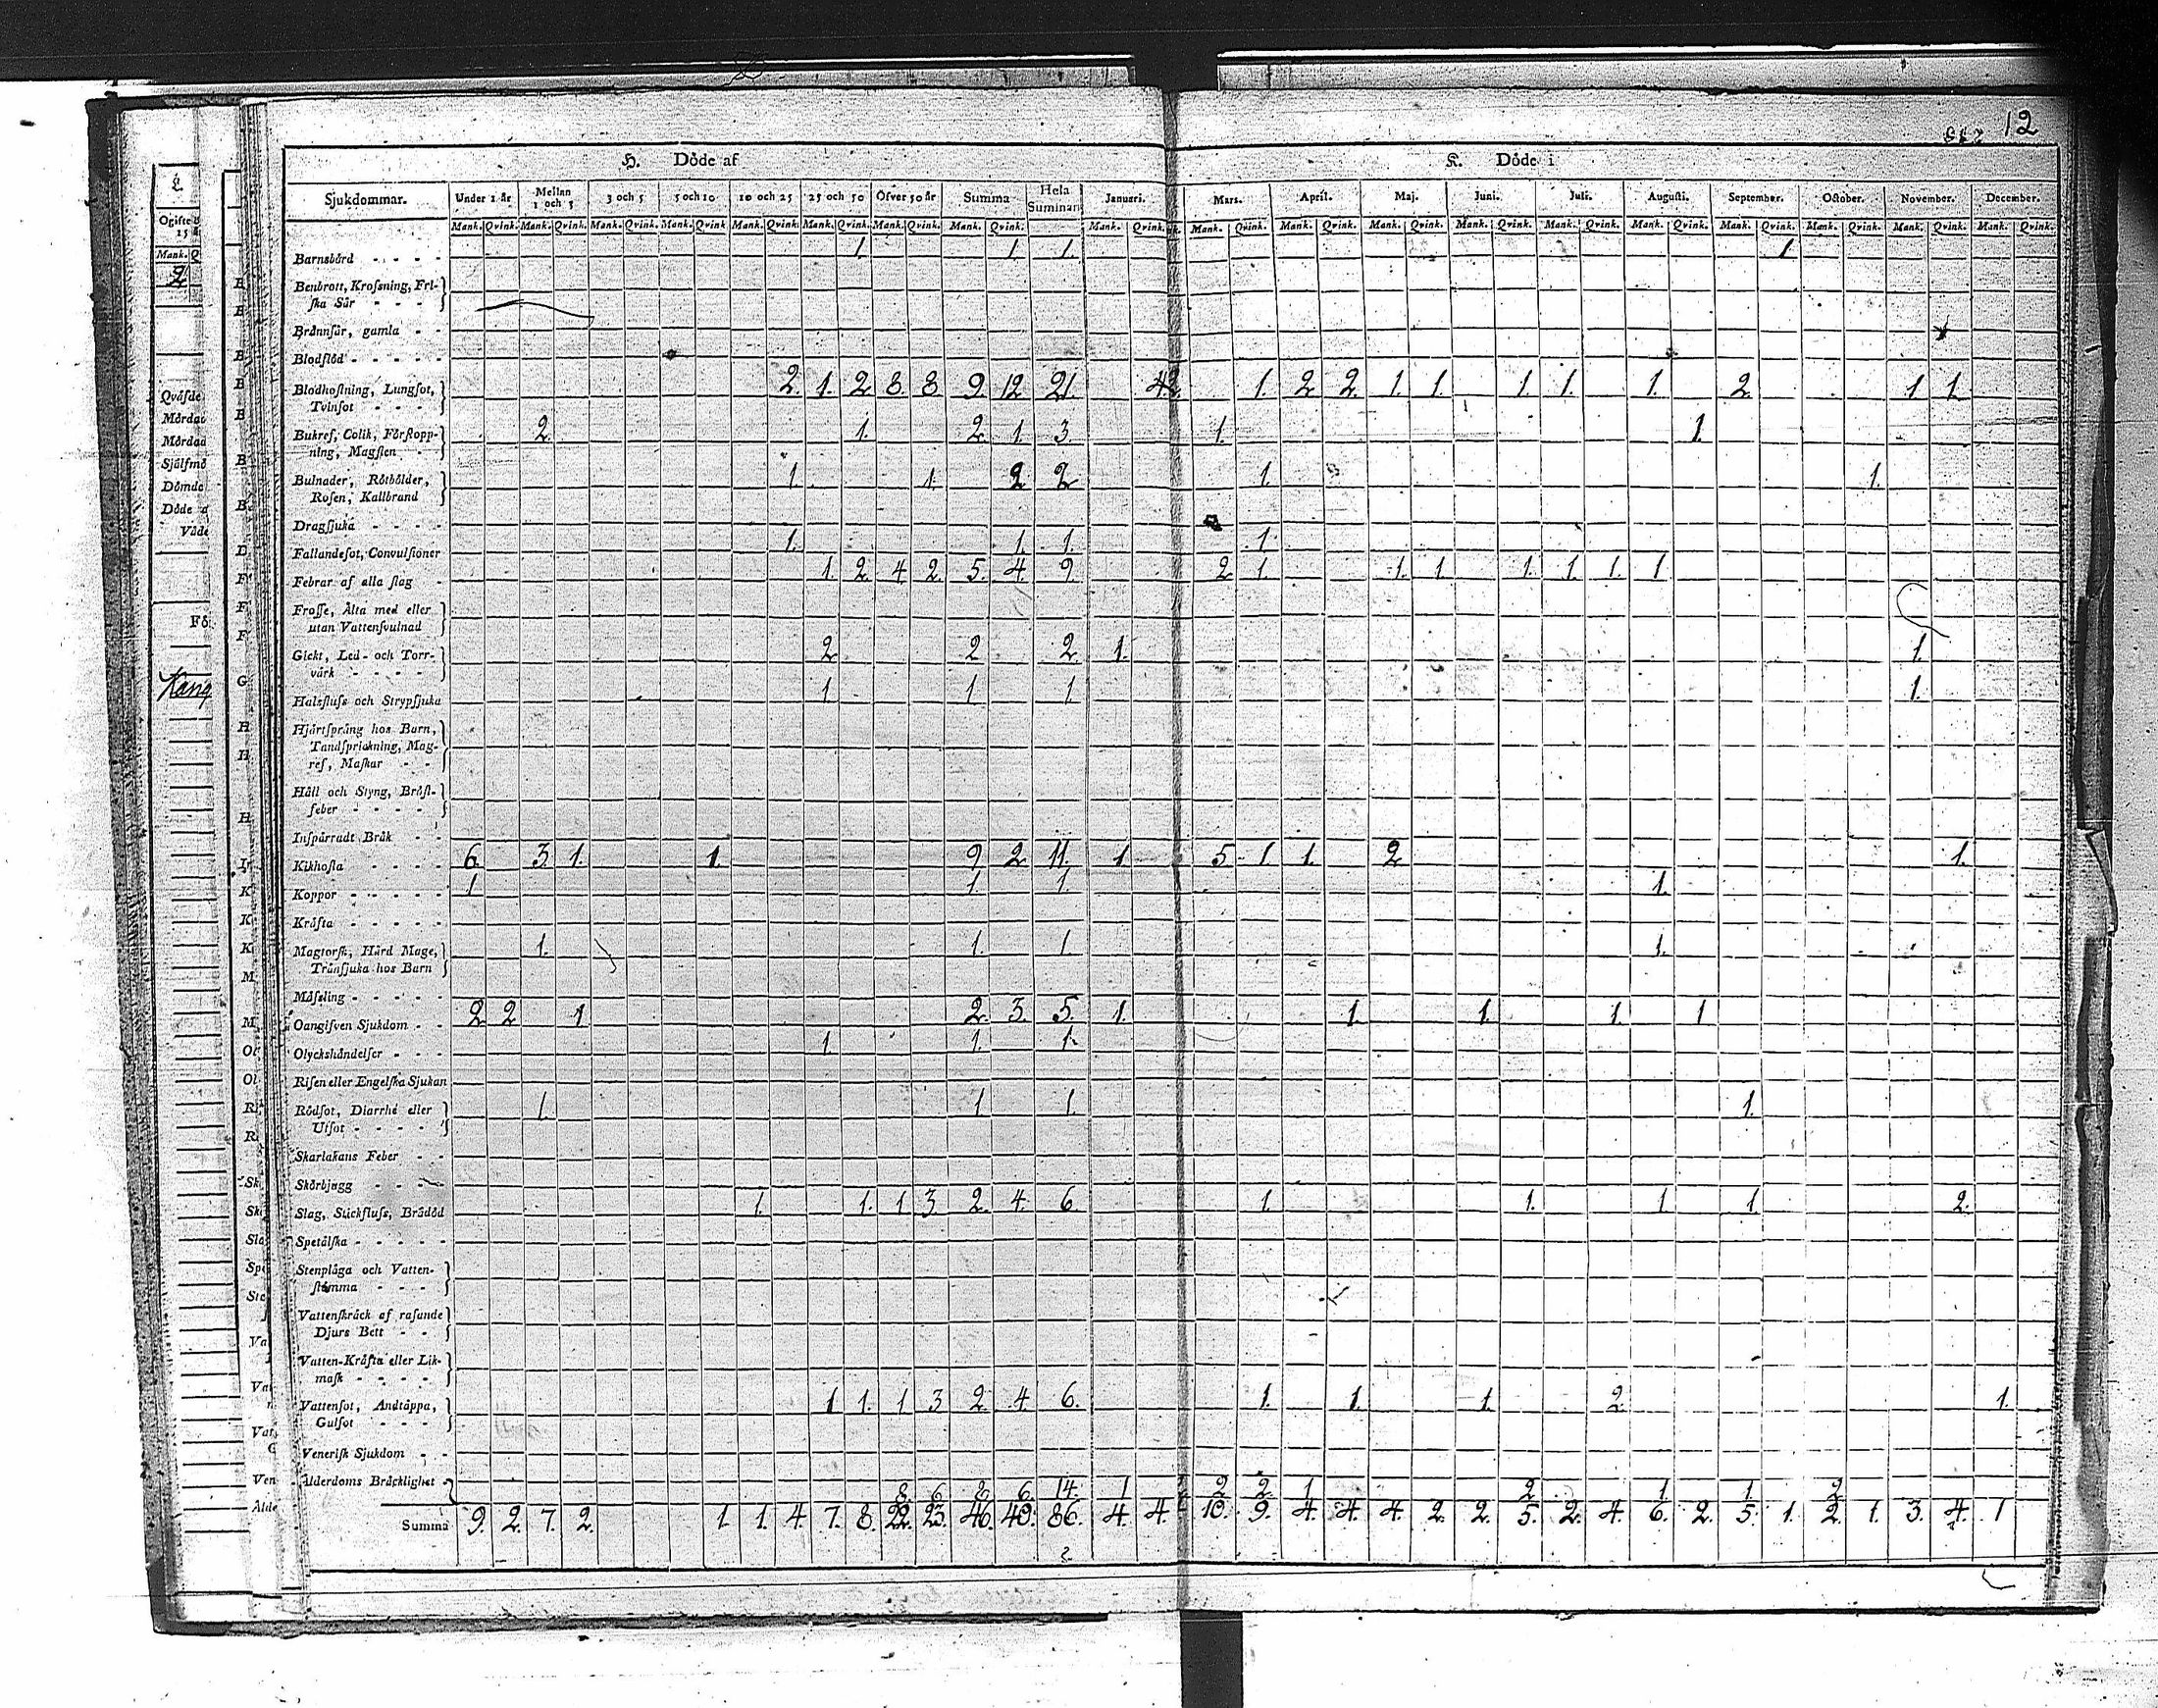 12
H. Döde af
K. Döde i
Sjukdommar. Under 1 år Mellan 1 och 3 3 och 5 5 och 10 10 och 25 25 och 50 Öfver 50 år Summa Hela Summan Januari. Mars. April. Maj. Juni. Juli. Augusti. September. October. November. December.
Mank. Qvink. Mank. Qvink. Mank. Qvink. Mank. Qvink. Mank. Qvink. Mank. Qvink. Mank. Qvink. Mank. Qvink. Mank. Qvink. Mank. Qvink. Mank. Qvink. Mank. Qvink. Mank. Qvink. Mank. Qvink. Mank. Qvink. Mank. Qvink. Mank. Qvink. Mank. Qvink. Mank. Qvink.
Barnsbörd 1. 1. 1. 1
Benbrott, Krofsning, Fri-
ſka Sår
Brännſår, gamla
Blodſlöd
Blodhoſtning, Lungſot, 2. 1. 2. 8. 8. 9. 12. 21. 4. 2. 1. 2. 2. 1. 1. 1. 1. 1. 2. 1 1.
Tvinſot
Bukref, Colik, Förſtopp- 2. 1. 2. 1. 3. 1. 1.
ning, Magſten
Bulnader, Rötbölder, 1. 1. 2 2. 1. 1.
Roſen, Kallbrand
Dragſjuka
Fallandeſot, Convulſioner 1. 1. 1. 1.
Febrar af alla ſlag 1. 2. 4. 2. 5. 4. 9. 2. 1. 1. 1. 1. 1. 1. 1
Froſſe, Älta med eller
utan Vattenſvulnad
Gickt, Led- och Torr- 2. 2. 2. 1. 1.
värk
Halsfluſs och Strypſjuka 1 1 1. 1.
Hjärtſprång hos Barn,
Tandſprickning, Mag-
ref, Maſkar
Håll och Styng, Bröſt-
feber
Inſpärradt Bråk
Kikhoſta 6. 3. 1. 1. 9. 2. 11. 1 5. 1 1. 2 1.
Koppor 1 1. 1. 1.
Kräfta
Magtorſk, Hård Mage, 1. 1. 1. 1.
Tränſjuka hos Barn
Mäſsling
Oangifven Sjukdom 2. 2. 1 2. 3. 5. 1. 1. 1. 1. 1
Olyckshändelſer 1. 1. 1.
Riſen eller Engelſka Sjukan
Rödſot, Diarrhé eller 1. 1 1. 1.
Utſot
Skarlakans Feber
Skörbjugg
Slag, Stickfluſs, Brådöd 1. 1. 1 3. 2. 4. 6. 1. 1. 1 1. 2.
Spetälſka
Stenplåga och Vatten-
ſtämma
Vattenſkräck af raſande
Djurs Bett
Vatten-Kräfta eller Lik-
maſk
Vattenſot, Andtäppa, 1 1. 1 3 2. 4. 6. 1. 1. 1. 2. 1.
Gulſot
Veneriſk Sjukdom
Ålderdoms Bräcklighet 8. 6 8 6. 14. 1 2 2. 1 2 1 1 2
Summa 9. 2. 7. 2. 1. 1. 4. 7. 8. 22. 23. 46. 40. 86. 4. 4 10. 9. 4. 4. 4. 2. 2. 5. 2. 4. 6. 2. 5. 1. 2. 1. 3. 4. 1